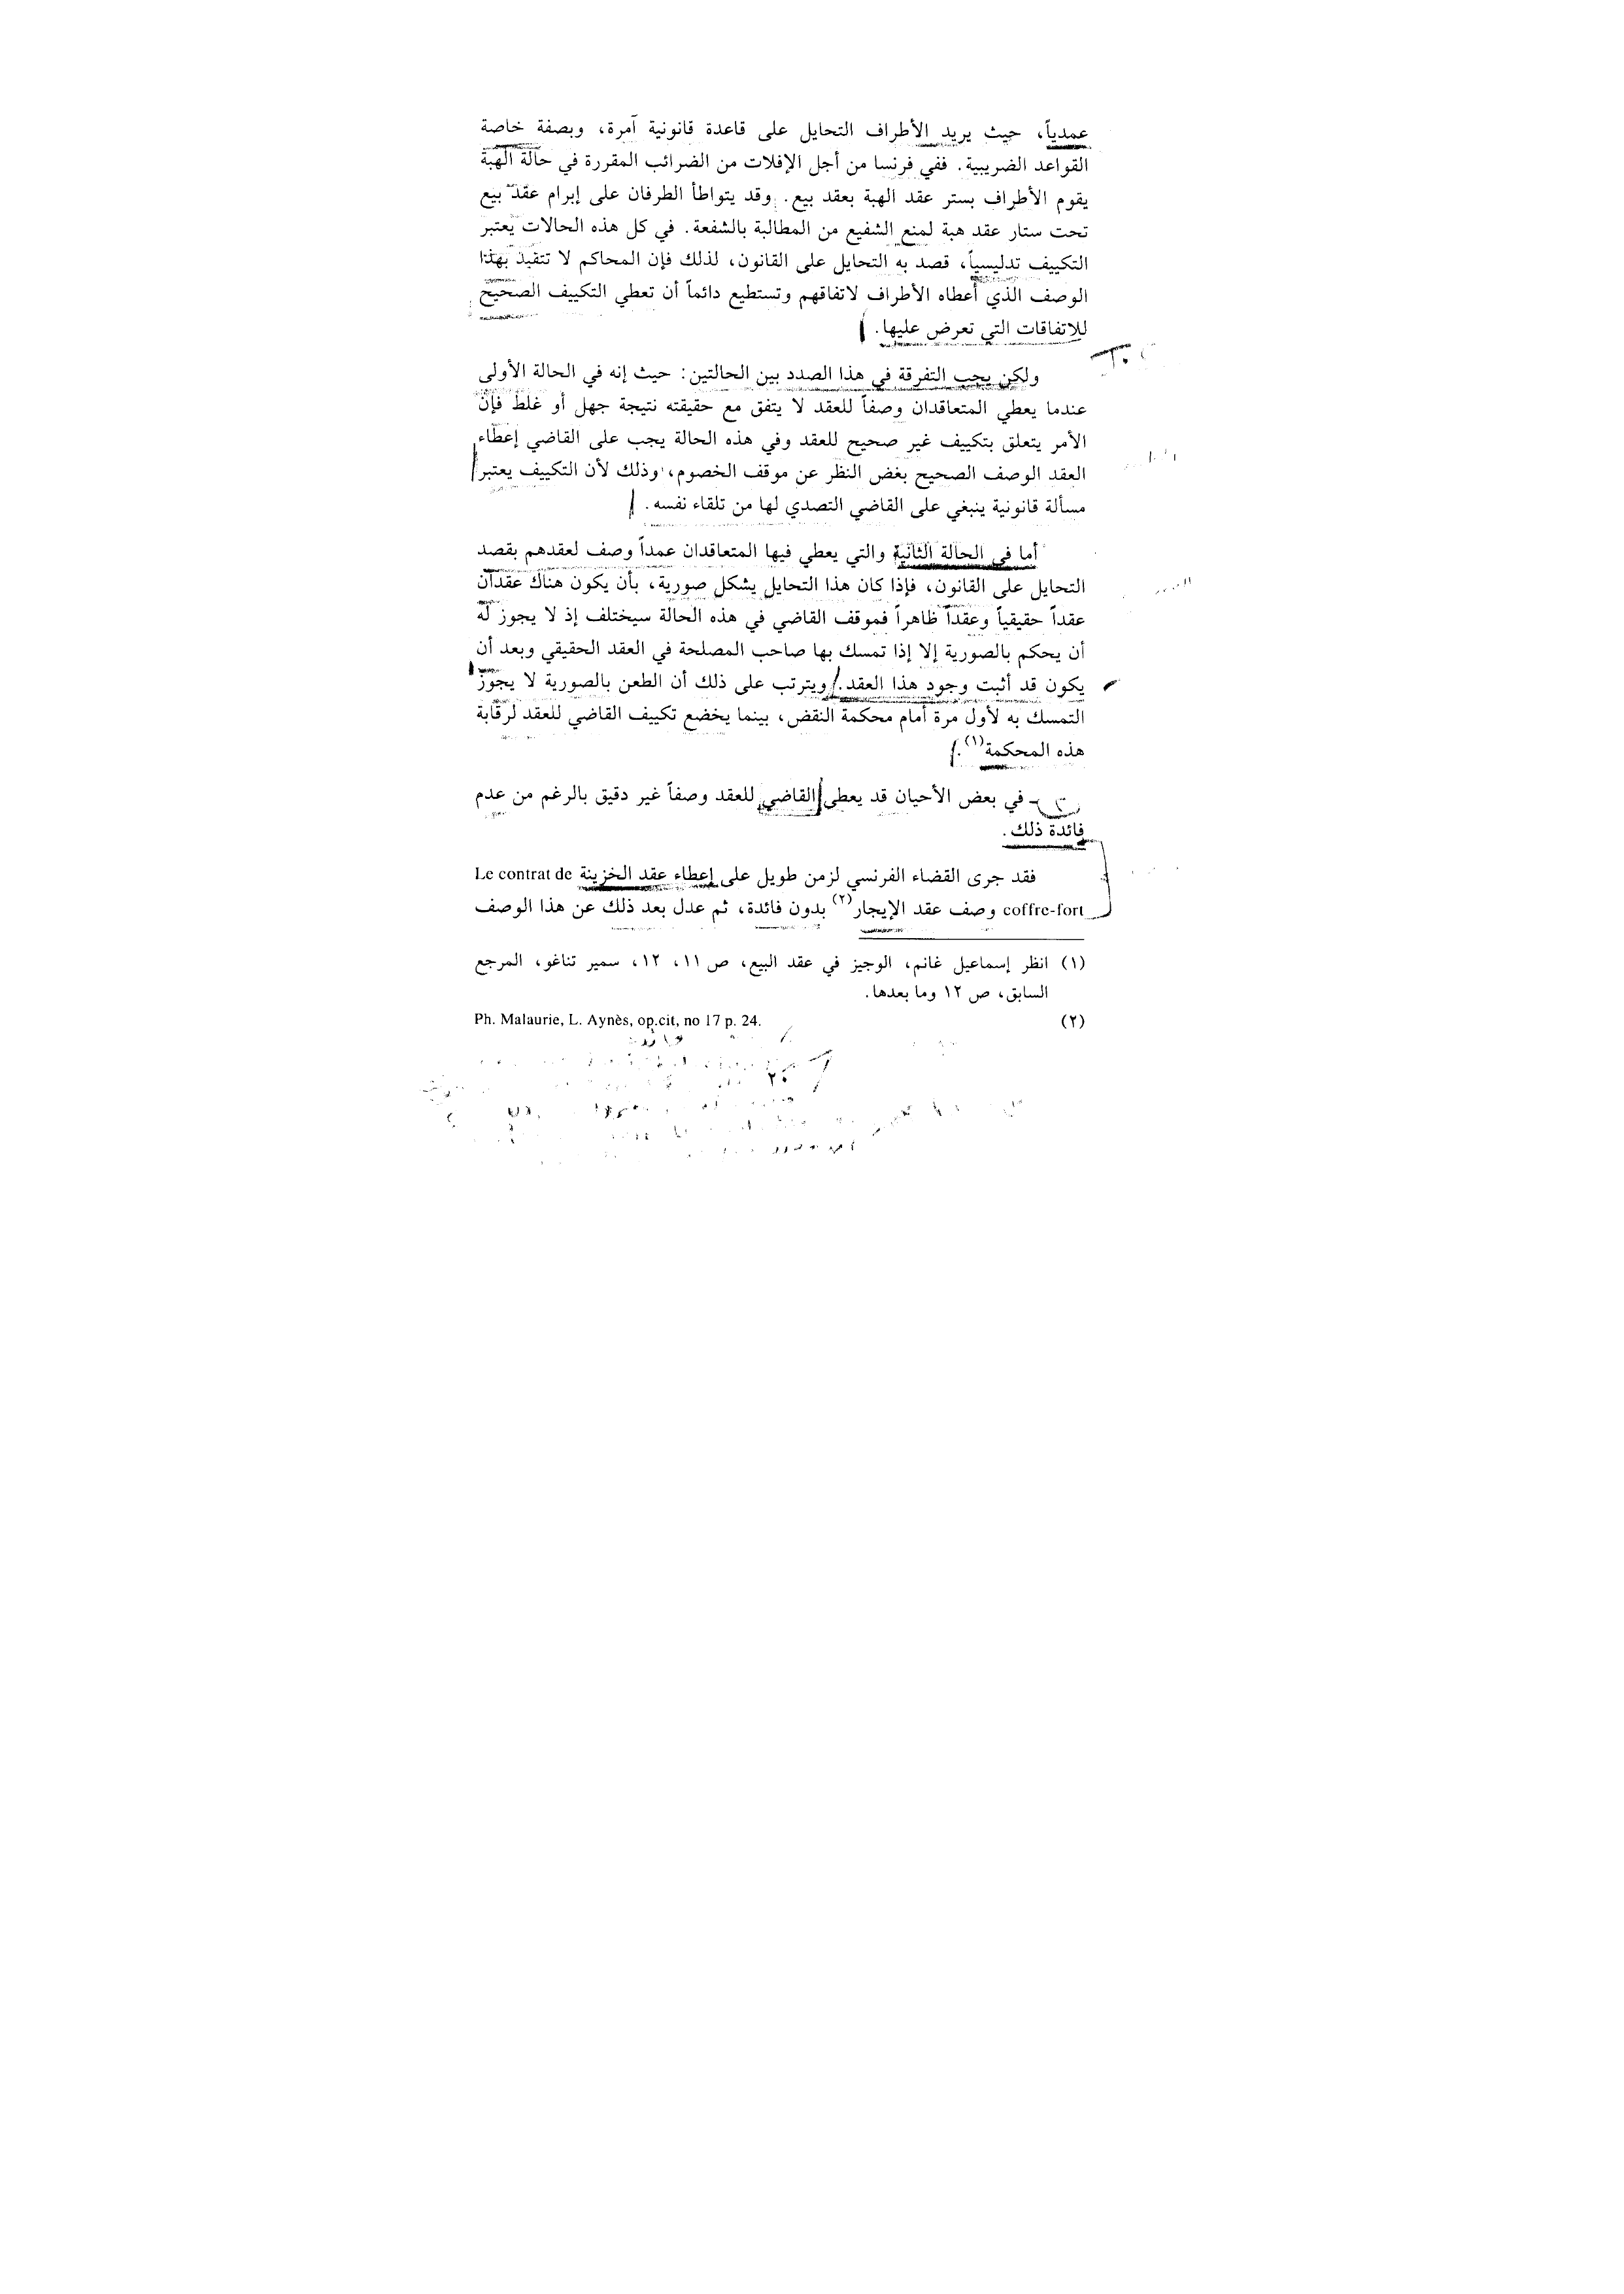 عمدياً، حيث يريد الأطراف التحايل على قاعدة قانونية آمرة، وبصفة خاصة
القواعد الضريبية. ففي فرنسا من أجل الإفلات من الضرائب المقررة في حالة الهبة
يقوم الأطراف بستر عقد الهبة بعقد بيع. وقد يتواطأ الطرفان على إبرام عقد بيع
تحت ستار عقد هبة لمنع الشفيع من المطالبة بالشفعة. في كل هذه الحالات يعتبر
التكييف تدليسياً، قصد به التحايل على القانون، لذلك فإن المحاكم لا تتقيد بهذا
الوصف الذي أعطاه الأطراف لاتفاقهم وتستطيع دائماً أن تعطي التكييف الصحيح
للاتفاقات التي تعرض عليها.
ولكن يجب التفرقة في هذا الصدد بين الحالتين: حيث إنه في الحالة الأولى
عندما يعطي المتعاقدان وصفاً للعقد لا يتفق مع حقيقته نتيجة جهل أو غلط فإن
الأمر يتعلق بتكييف غير صحيح للعقد وفي هذه الحالة يجب على القاضي إعطاء
العقد الوصف الصحيح بغض النظر عن موقف الخصوم، وذلك لأن التكييف يعتبر
مسألة قانونية ينبغي على القاضي التصدي لها من تلقاء نفسه.
أما في الحالة الثانية والتي يعطي فيها المتعاقدان عمداً وصف لعقدهم بقصد
التحايل على القانون، فإذا كان هذا التحايل يشكل صورية، بأن يكون هناك عقدان
عقداً حقيقياً وعقداً ظاهراً فموقف القاضي في هذه الحالة سيختلف إذ لا يجوز له
أن يحكم بالصورية إلا إذا تمسك بها صاحب المصلحة في العقد الحقيقي وبعد أن
يكون قد أثبت وجود هذا العقد. ويترتب على ذلك أن الطعن بالصورية لا يجوز
التمسك به لأول مرة أمام محكمة النقض، بينما يخضع تكييف القاضي للعقد لرقابة
هذه المحكمة(١).
- في بعض الأحيان قد يعطي القاضي للعقد وصفاً غير دقيق بالرغم من عدم
فائدة ذلك.
فقد جرى القضاء الفرنسي لزمن طويل على إعطاء عقد الخزينة Le contrat de
coffre-fort وصف عقد الإيجار(٢) بدون فائدة، ثم عدل بعد ذلك عن هذا الوصف
(١) انظر إسماعيل غانم، الوجيز في عقد البيع، ص ١١، ١٢، سمير تناغو، المرجع
السابق، ص ١٢ وما بعدها.
(٢) Ph. Malaurie, L. Aynès, op.cit, no 17 p. 24.
٢٠